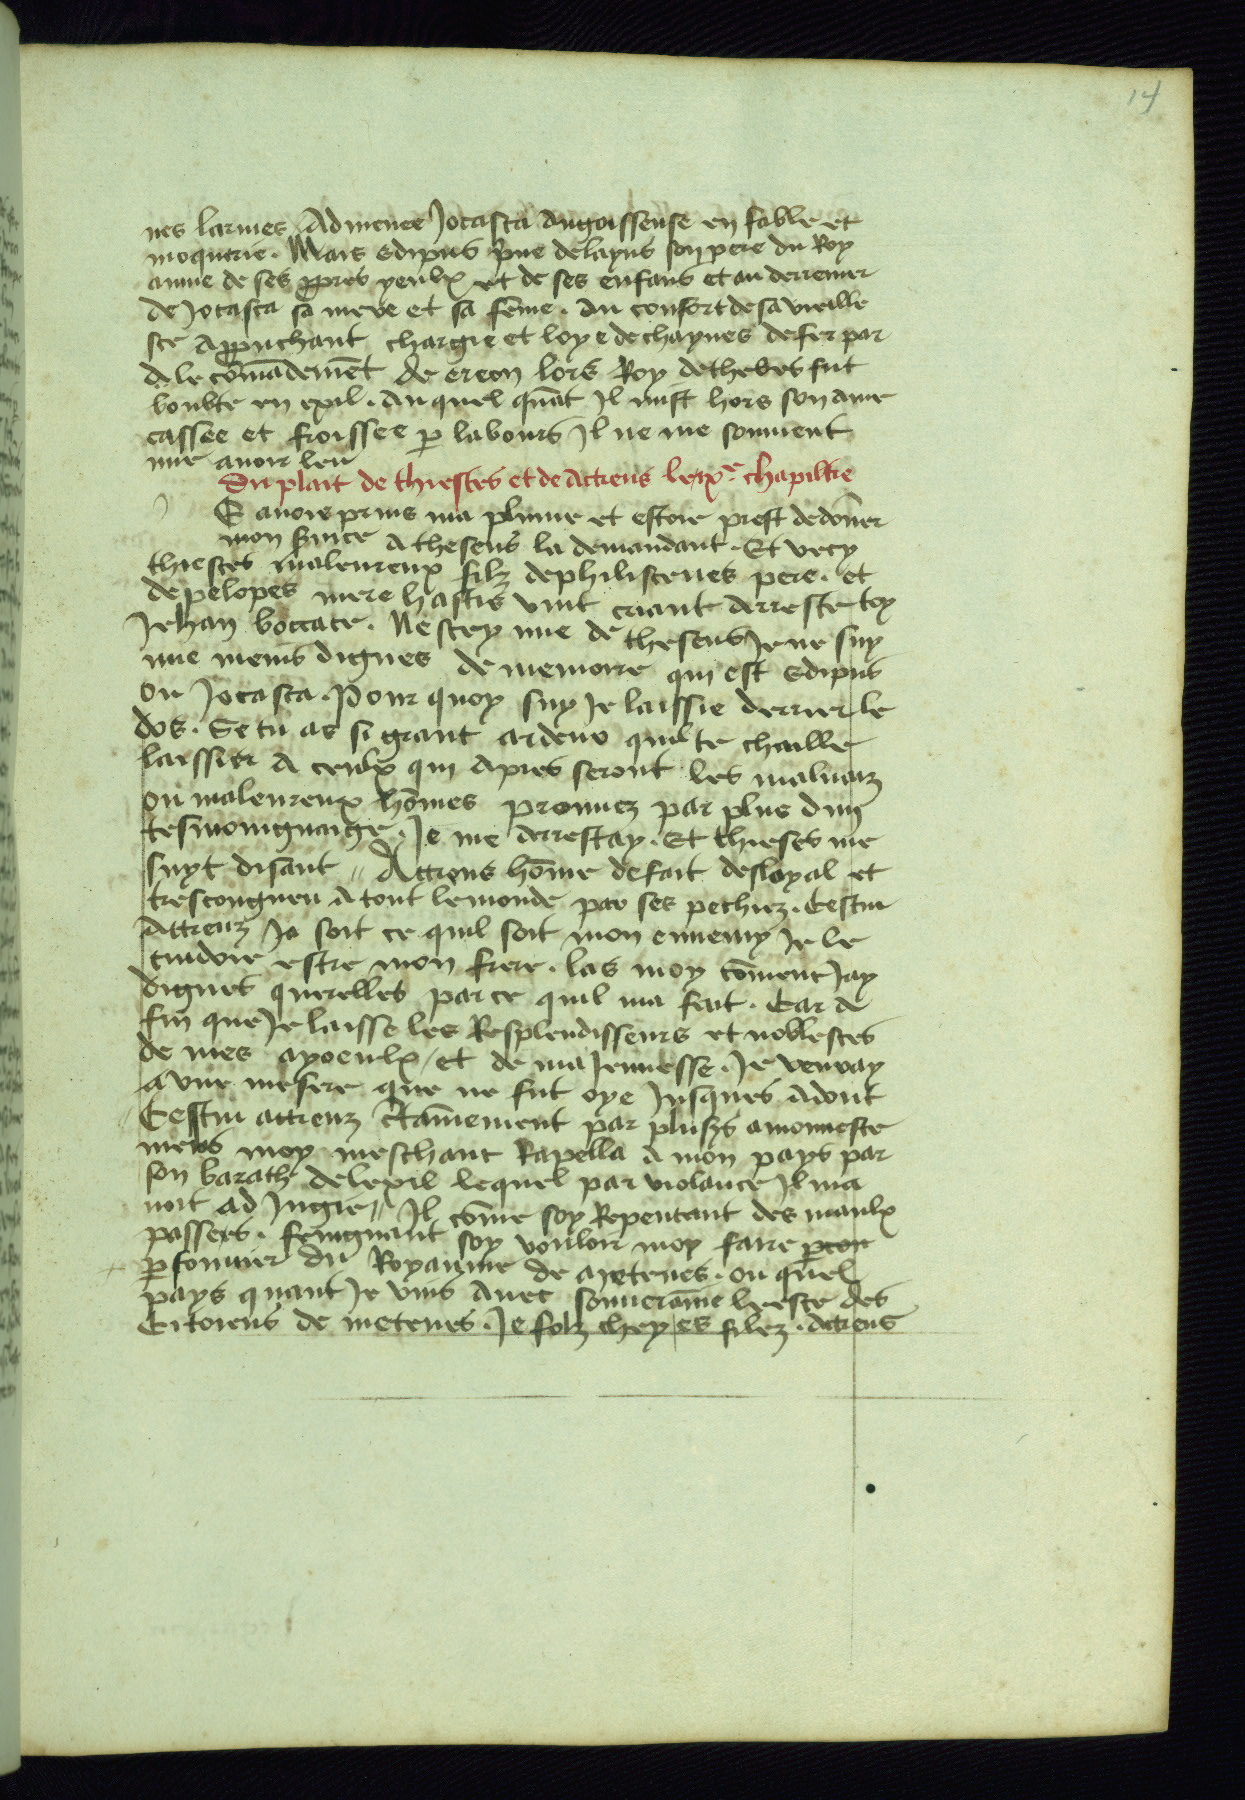 14
nes larmes Admenee Jocasta angoisseuse en fable et
moquerie. Mais Edipus prive de layus son pere du Roy
aume de ses ppres yeulx et de ses enfans et au derrenier
de Jocasta sa mere et sa fēme. Au confort de sa vieille
sce Appuchant chargie et loye de chaynes de fer par
de le cōmādemēt de creon lors Roy de thebes fut
boubte en exil. Auquel quāt Il mist hors son ame
cassee et froissee p labours Il ne me souvient
mie avoir leu
Du plait de thiestes et de Actreus le ixe. chapiltre
E avoie prins ma plume et estoie prest de dōner
mon suice A theseus la demandant. Et vecy
thiestes maleureux filz de philistenes pere. et
de pelopes mere hastis vint criant Arreste toy
Jehan boccace. Ne scey mie de theseus Je ne suy
mie meins dignes de memoire qui est Edipus
ou Jocasta. Pour quoy suy Je laissie derrier le
dos. Se tu as si grant ardeur quil te chaille
laissier A ceulx qui Apres seront les malvaiz
ou maleureux hōmes prouvez par plus dun
tesmoingnaige. Je me Arrestay. Et thiestes me
suyt disant // Actreus hōme de fait desloyal et
trescongneu A tout le monde par ses pechiez. Cestui
Attreuz Ja soit ce quil soit mon ennemy Je le
cuidoie estre mon frere. las moy cōment Jay
dignes querelles par ce quil ma fait. Car A
fin que Je laisse les Resplendisseurs et noblesces
de mes ayoeulx / et de ma Jeunesse. Je venray
A une misere que ne fut oye Jusques Adont
Cestui attreuz Ctaīnement par plusrs amoneste
mens moy meschant Rapella A mon pays par
son barath de lexil lequel par violance Il ma
voit ad Jugie // Il cōme soy Repentant des maulx
passees. feingnant soy vouloir moy faire pcon
psonnier du Royaume de metenes. ou quel
pays quant Je vins Avec souveraīne leesce des
Citoiens de metenes. Je folz chey es filez. Actreus